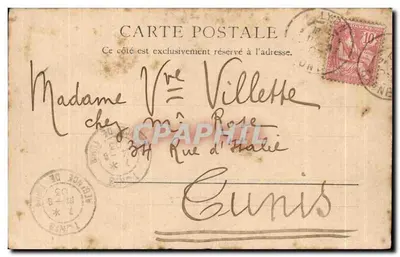 CARTE POSTALE
Ce côté est exclusivement réservé à l'adresse.
Madame Vve Villette
chez Mr Rose
34 Rue d'Italie
Tunis
10
LYON
TUNIS
CPAPHIL.COM